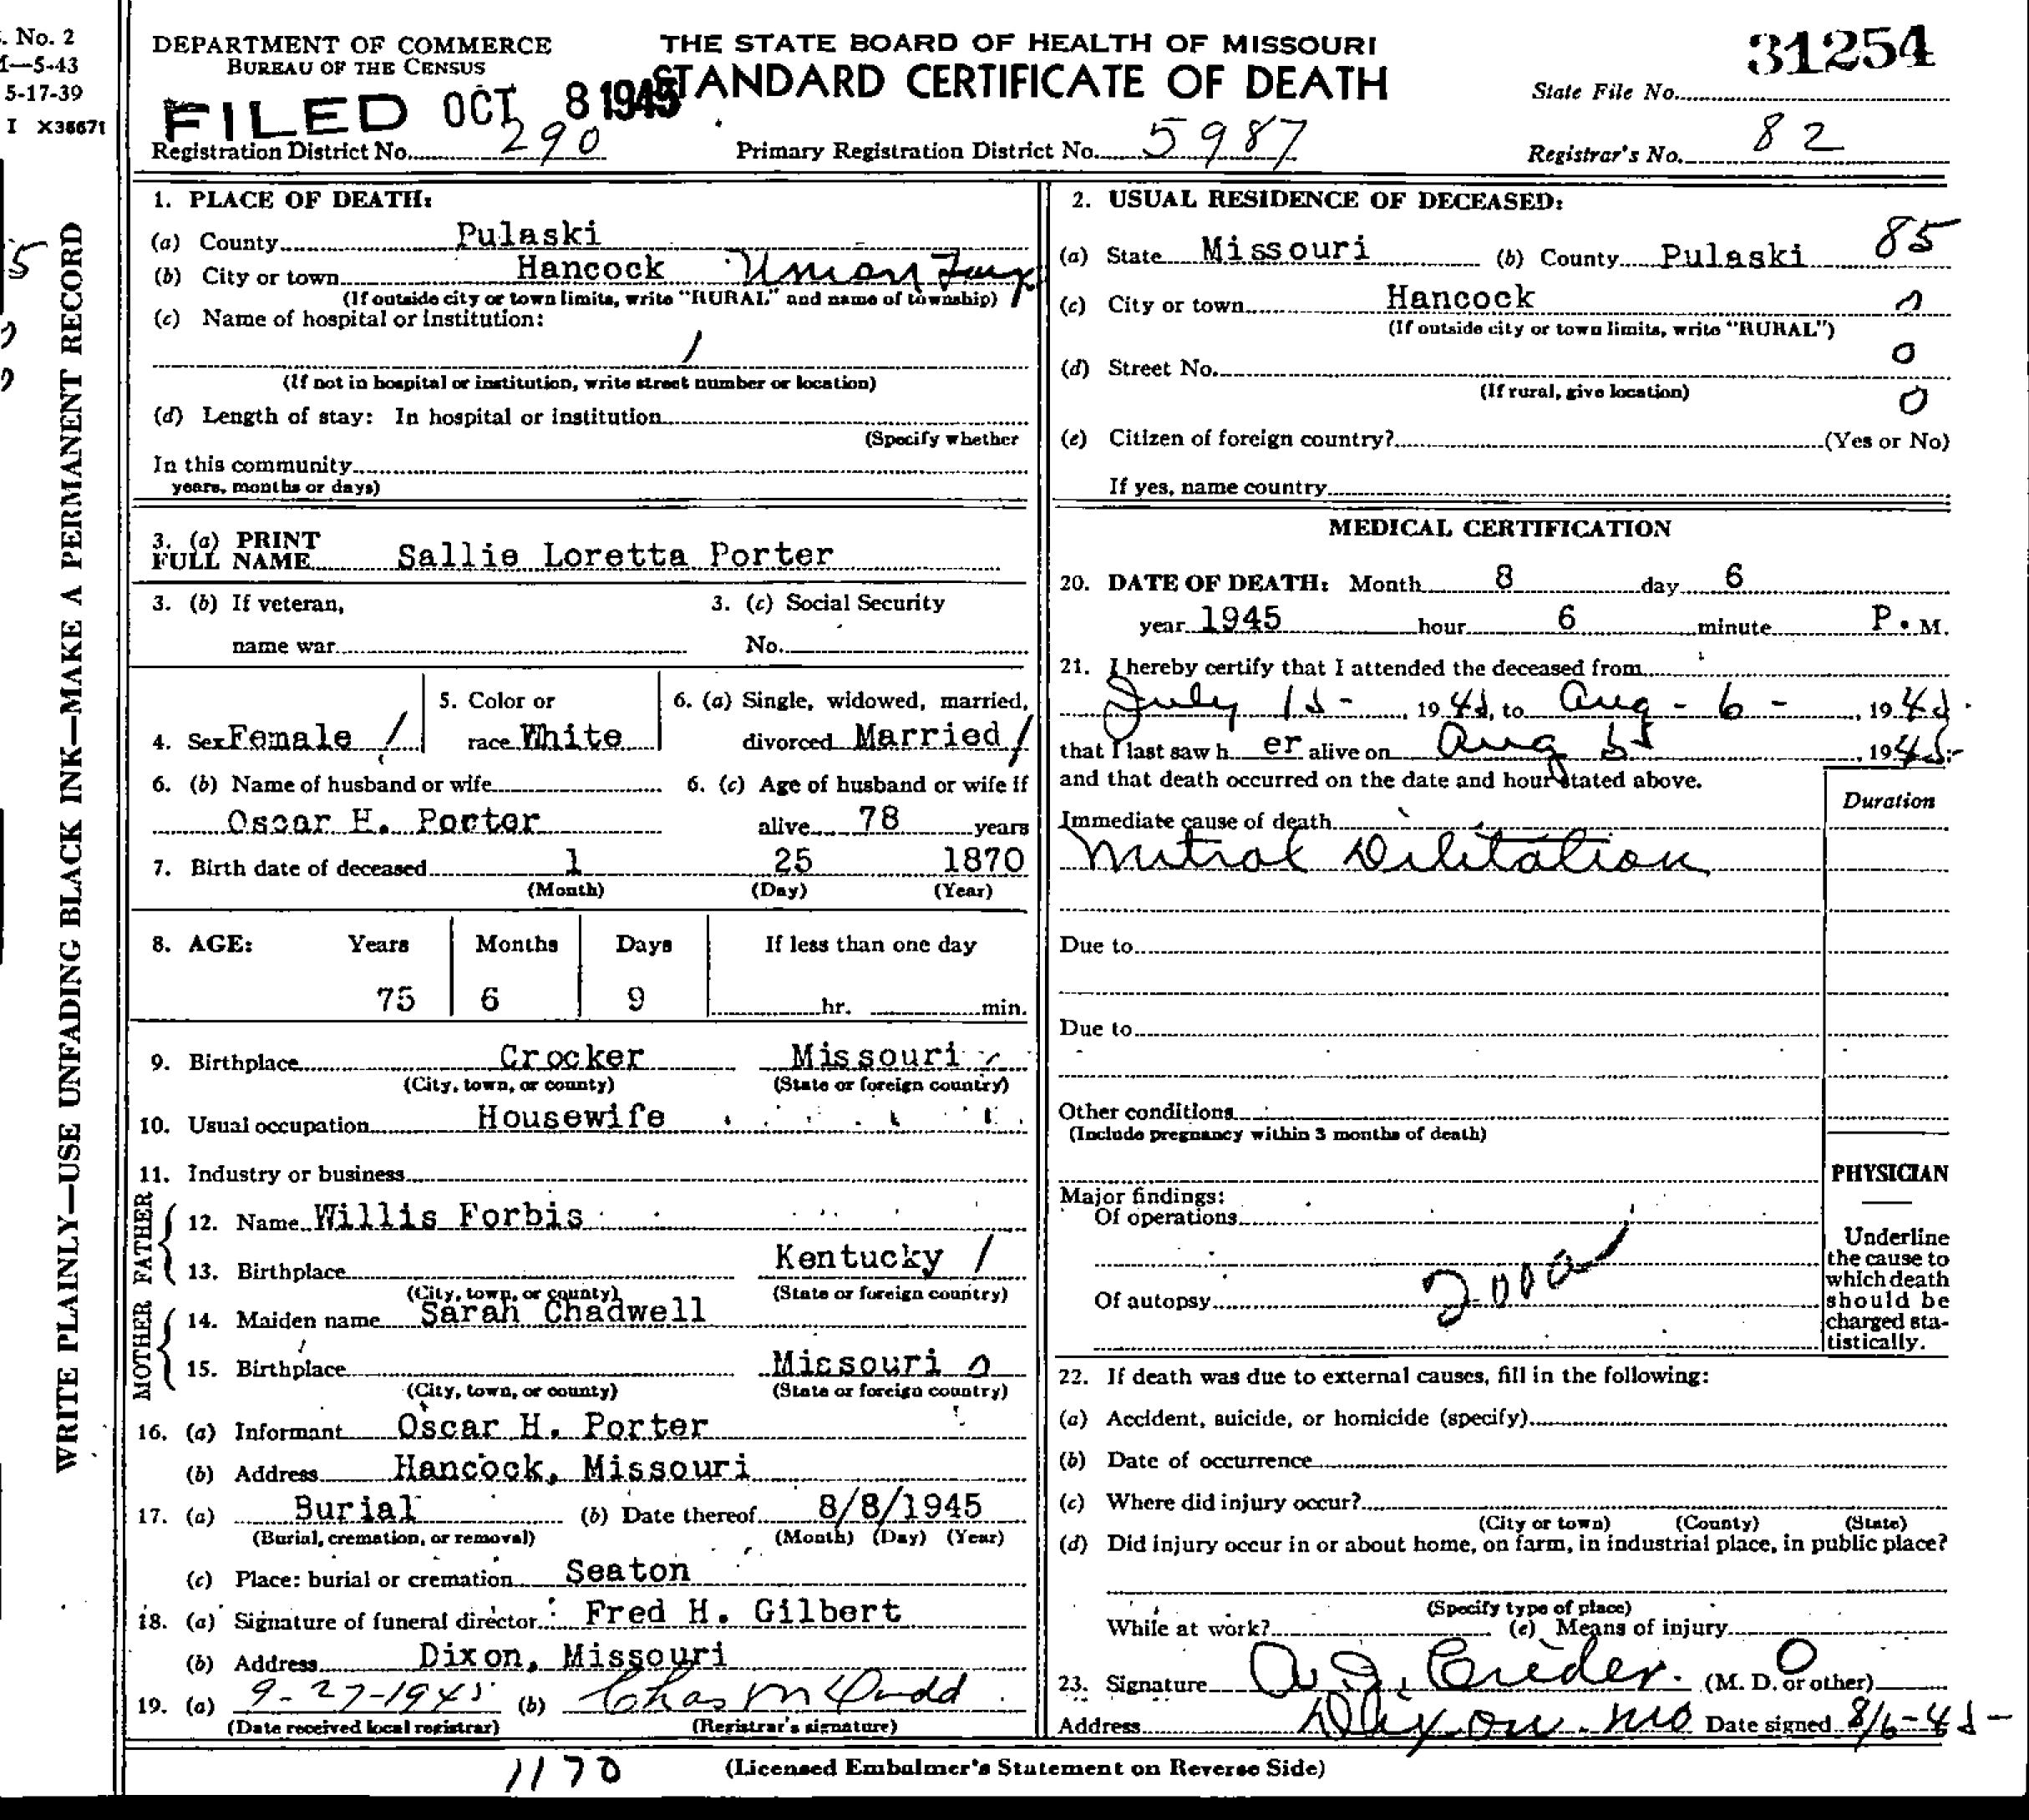 . No. 2
M—5-43
5-17-39
I X36671
DEPARTMENT OF COMMERCE
BUREAU OF THE CENSUS
THE STATE BOARD OF HEALTH OF MISSOURI
STANDARD CERTIFICATE OF DEATH
FILED OCT 8 1945
State File No. 31254
Registration District No. 290
Primary Registration District No. 5987
Registrar's No. 82
WRITE PLAINLY—USE UNFADING BLACK INK—MAKE A PERMANENT RECORD
1. PLACE OF DEATH:
(a) County Pulaski
(b) City or town Hancock Union
(If outside city or town limits, write "RURAL" and name of township)
(c) Name of hospital or institution:
(If not in hospital or institution, write street number or location)
(d) Length of stay: In hospital or institution
(Specify whether
In this community
years, months or days)
3. (a) PRINT
FULL NAME Sallie Loretta Porter
3. (b) If veteran,
name war
3. (c) Social Security
No.
4. Sex Female /
5. Color or
race White
6. (a) Single, widowed, married,
divorced Married /
6. (b) Name of husband or wife
Oscar H. Porter
6. (c) Age of husband or wife if
alive 78 years
7. Birth date of deceased 1 25 1870
(Month) (Day) (Year)
8. AGE: Years Months Days If less than one day
75 6 9 hr. min.
9. Birthplace Crocker Missouri
(City, town, or county) (State or foreign country)
10. Usual occupation Housewife
11. Industry or business
FATHER
12. Name Willis Forbis
13. Birthplace Kentucky /
(City, town, or county) (State or foreign country)
MOTHER
14. Maiden name Sarah Chadwell
15. Birthplace Missouri 0
(City, town, or county) (State or foreign country)
16. (a) Informant Oscar H. Porter
(b) Address Hancock, Missouri
17. (a) Burial (b) Date thereof 8/8/1945
(Burial, cremation, or removal) (Month) (Day) (Year)
(c) Place: burial or cremation Seaton
18. (a) Signature of funeral director Fred H. Gilbert
(b) Address Dixon, Missouri
19. (a) 9-27-1945 (b) Chas M
(Date received local registrar) (Registrar's signature)
2. USUAL RESIDENCE OF DECEASED:
85
(a) State Missouri (b) County Pulaski
(c) City or town Hancock 0
(If outside city or town limits, write "RURAL")
(d) Street No. 0
(If rural, give location)
0
(e) Citizen of foreign country? (Yes or No)
If yes, name country
MEDICAL CERTIFICATION
20. DATE OF DEATH: Month 8 day 6
year 1945 hour 6 minute P. M.
21. I hereby certify that I attended the deceased from
July 15- 1945, to Aug - 6 - , 1945.
that I last saw her alive on Aug , 1945-
and that death occurred on the date and hour stated above.
Duration
Immediate cause of death
Mitral Dilitation
Due to
Due to
Other conditions
(Include pregnancy within 3 months of death)
PHYSICIAN
Underline the cause to which death should be charged statistically.
Major findings:
Of operations
Of autopsy
22. If death was due to external causes, fill in the following:
(a) Accident, suicide, or homicide (specify)
(b) Date of occurrence
(c) Where did injury occur?
(City or town) (County) (State)
(d) Did injury occur in or about home, on farm, in industrial place, in public place?
(Specify type of place)
While at work? (e) Means of injury
23. Signature Crider. (M. D. or other) 0
Address Dixon. Mo Date signed 8/6-45-
1170
(Licensed Embalmer's Statement on Reverse Side)